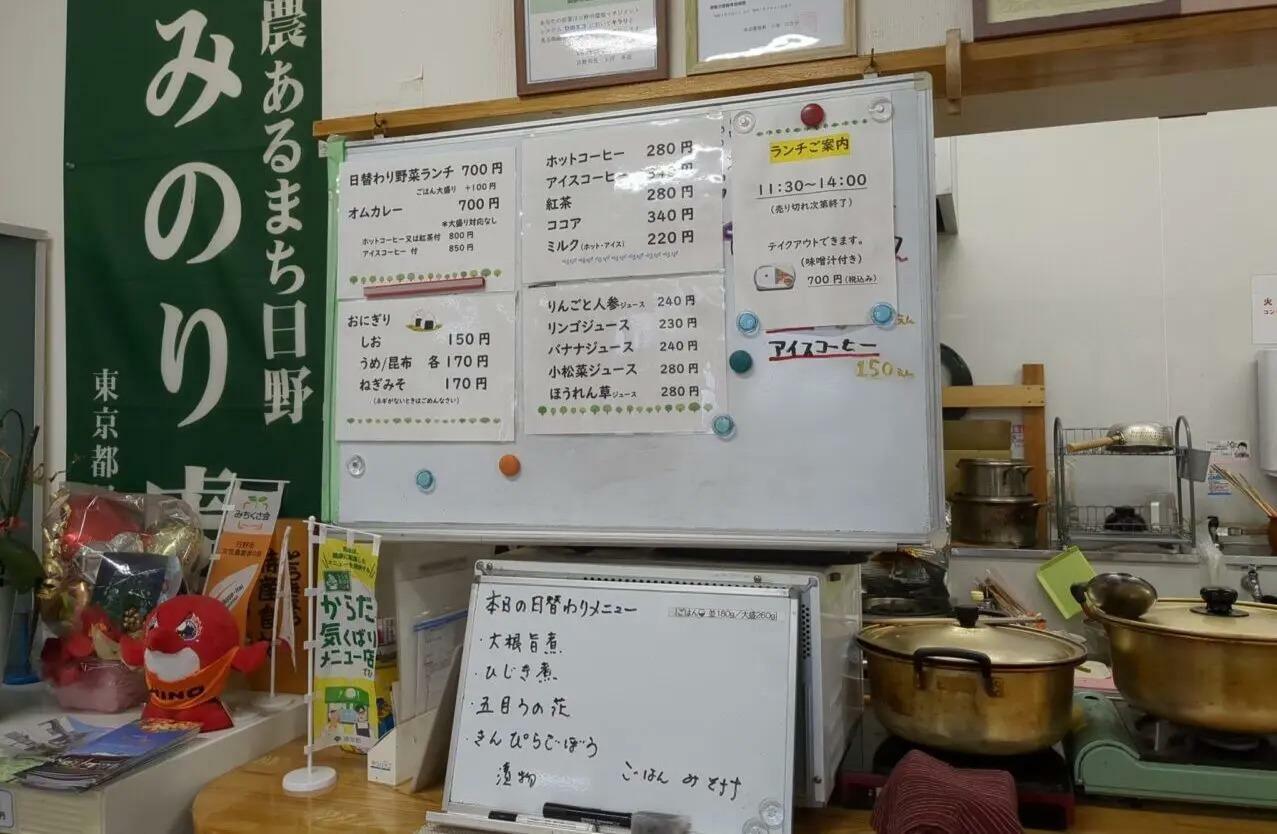 農あるまち日野
みのり
東京都
日替わり野菜ランチ 700円
ごはん大盛り +100円
オムカレー 700円
*大盛り対応なし
ホットコーヒー又は紅茶付 800円
アイスコーヒー 付 850円
おにぎり
しお 150円
うめ/昆布 各170円
ねぎみそ 170円
(ネギがないときはごめんなさい)
ホットコーヒー 280円
アイスコーヒー
紅茶 280円
ココア 340円
ミルク(ホット・アイス) 220円
りんごと人参ジュース 240円
リンゴジュース 230円
バナナジュース 240円
小松菜ジュース 280円
ほうれん草ジュース 280円
ランチご案内
11:30~14:00
(売り切れ次第終了)
テイクアウトできます。
(味噌汁付き)
700円(税込み)
アイスコーヒー
150
本日の日替わりメニュー
ごはん 並180g/大盛260g
・大根旨煮
・ひじき煮
・五目うの花
・きんぴらごぼう
漬物 ごはん みそ汁
みちくさ会
からだ
気くばり
メニュー店
HINO
火